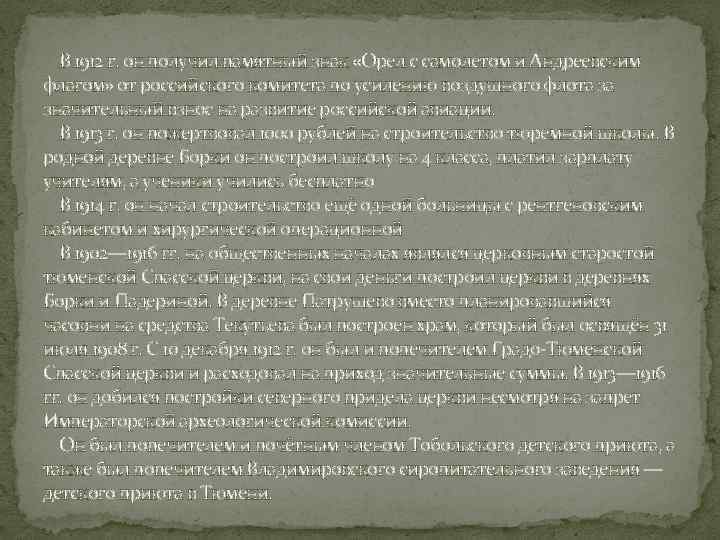 В 1912 г. он получил памятный знак «Орел с самолетом и Андреевским
флагом» от российского комитета по усилению воздушного флота за
значительный взнос на развитие российской авиации.
В 1913 г. он пожертвовал 1000 рублей на строительство тюремной школы. В
родной деревне Борки он построил школу на 4 класса, платил зарплату
учителям, а ученики учились бесплатно
В 1914 г. он начал строительство ещё одной больницы с рентгеновским
кабинетом и хирургической операционной
В 1902—1916 гг. на общественных началах являлся церковным старостой
тюменской Спасской церкви, на свои деньги построил церкви в деревнях
Борки и Падериной. В деревне Патрушево вместо планировавшийся
часовни на средства Текутьева был построен храм, который был освящён 31
июля 1908 г. С 10 декабря 1912 г. он был и попечителем Градо-Тюменской
Спасской церкви и расходовал на приход значительные суммы. В 1913—1916
гг. он добился постройки северного придела церкви несмотря на запрет
Императорской археологической комиссии.
Он был попечителем и почётным членом Тобольского детского приюта, а
также был попечителем Владимировского сиропитательного заведения —
детского приюта в Тюмени.